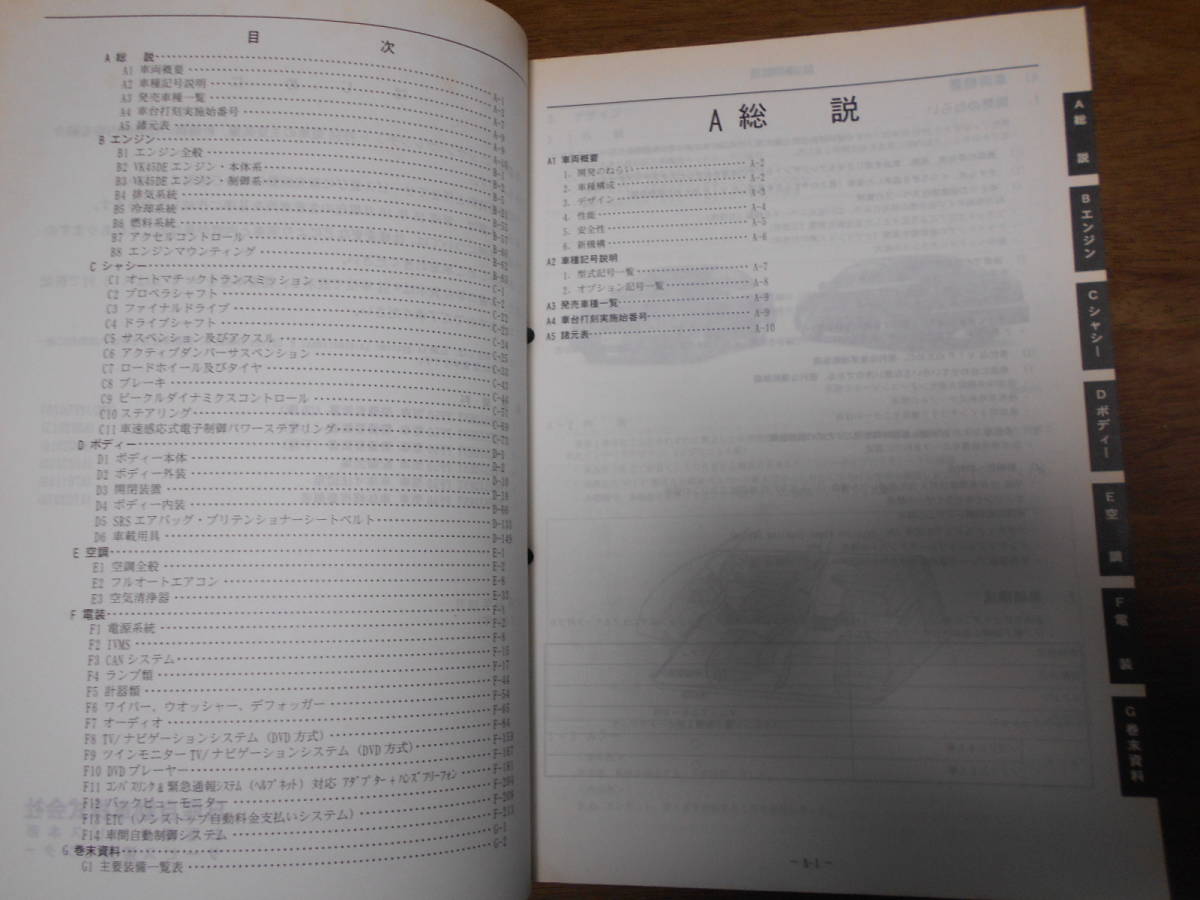 目　次
A 総　説
A1 車両概要
A2 車種記号説明
A3 発売車種一覧
A4 車台打刻実施始番号
A5 諸元表
B エンジン
B1 エンジン全般
B2 VK45DEエンジン・本体系
B3 VK45DEエンジン・制御系
B4 排気系統
B5 冷却系統
B6 燃料系統
B7 アクセルコントロール
B8 エンジンマウンティング
C シャシー
C1 オートマチックトランスミッション
C2 プロペラシャフト
C3 ファイナルドライブ
C4 ドライブシャフト
C5 サスペンション及びアクスル
C6 アクティブダンパーサスペンション
C7 ロードホイール及びタイヤ
C8 ブレーキ
C9 ビークルダイナミクスコントロール
C10 ステアリング
C11 車速感応式電子制御パワーステアリング
D ボディー
D1 ボディー本体
D2 ボディー外装
D3 開閉装置
D4 ボディー内装
D5 SRSエアバッグ・プリテンショナーシートベルト
D6 車載用具
E 空調
E1 空調全般
E2 フルオートエアコン
E3 空気清浄器
F 電装
F1 電源系統
F2 IVMS
F3 CANシステム
F4 ランプ類
F5 計器類
F6 ワイパー、ウオッシャー、デフォッガー
F7 オーディオ
F8 TV/ナビゲーションシステム (DVD方式)
F9 ツインモニターTV/ナビゲーションシステム (DVD方式)
F10 DVDプレーヤー
F11 コンパスリンク&緊急通報システム (ヘルプネット) 対応 アダプター+ハンズフリーフォン
F12 バックビューモニター
F13 ETC (ノンストップ自動料金支払いシステム)
F14 車間自動制御システム
G 巻末資料
G1 主要装備一覧表
A 総　説
A1 車両概要
1. 開発のねらい A-2
2. 車種構成 A-2
3. デザイン A-3
4. 性能 A-4
5. 安全性 A-5
6. 新機構 A-6
A2 車種記号説明
1. 型式記号一覧 A-7
2. オプション記号一覧 A-8
A3 発売車種一覧 A-9
A4 車台打刻実施始番号 A-9
A5 諸元表 A-10
A 総　説
B エンジン
C シャシー
D ボディー
E 空　調
F 電　装
G 巻末資料